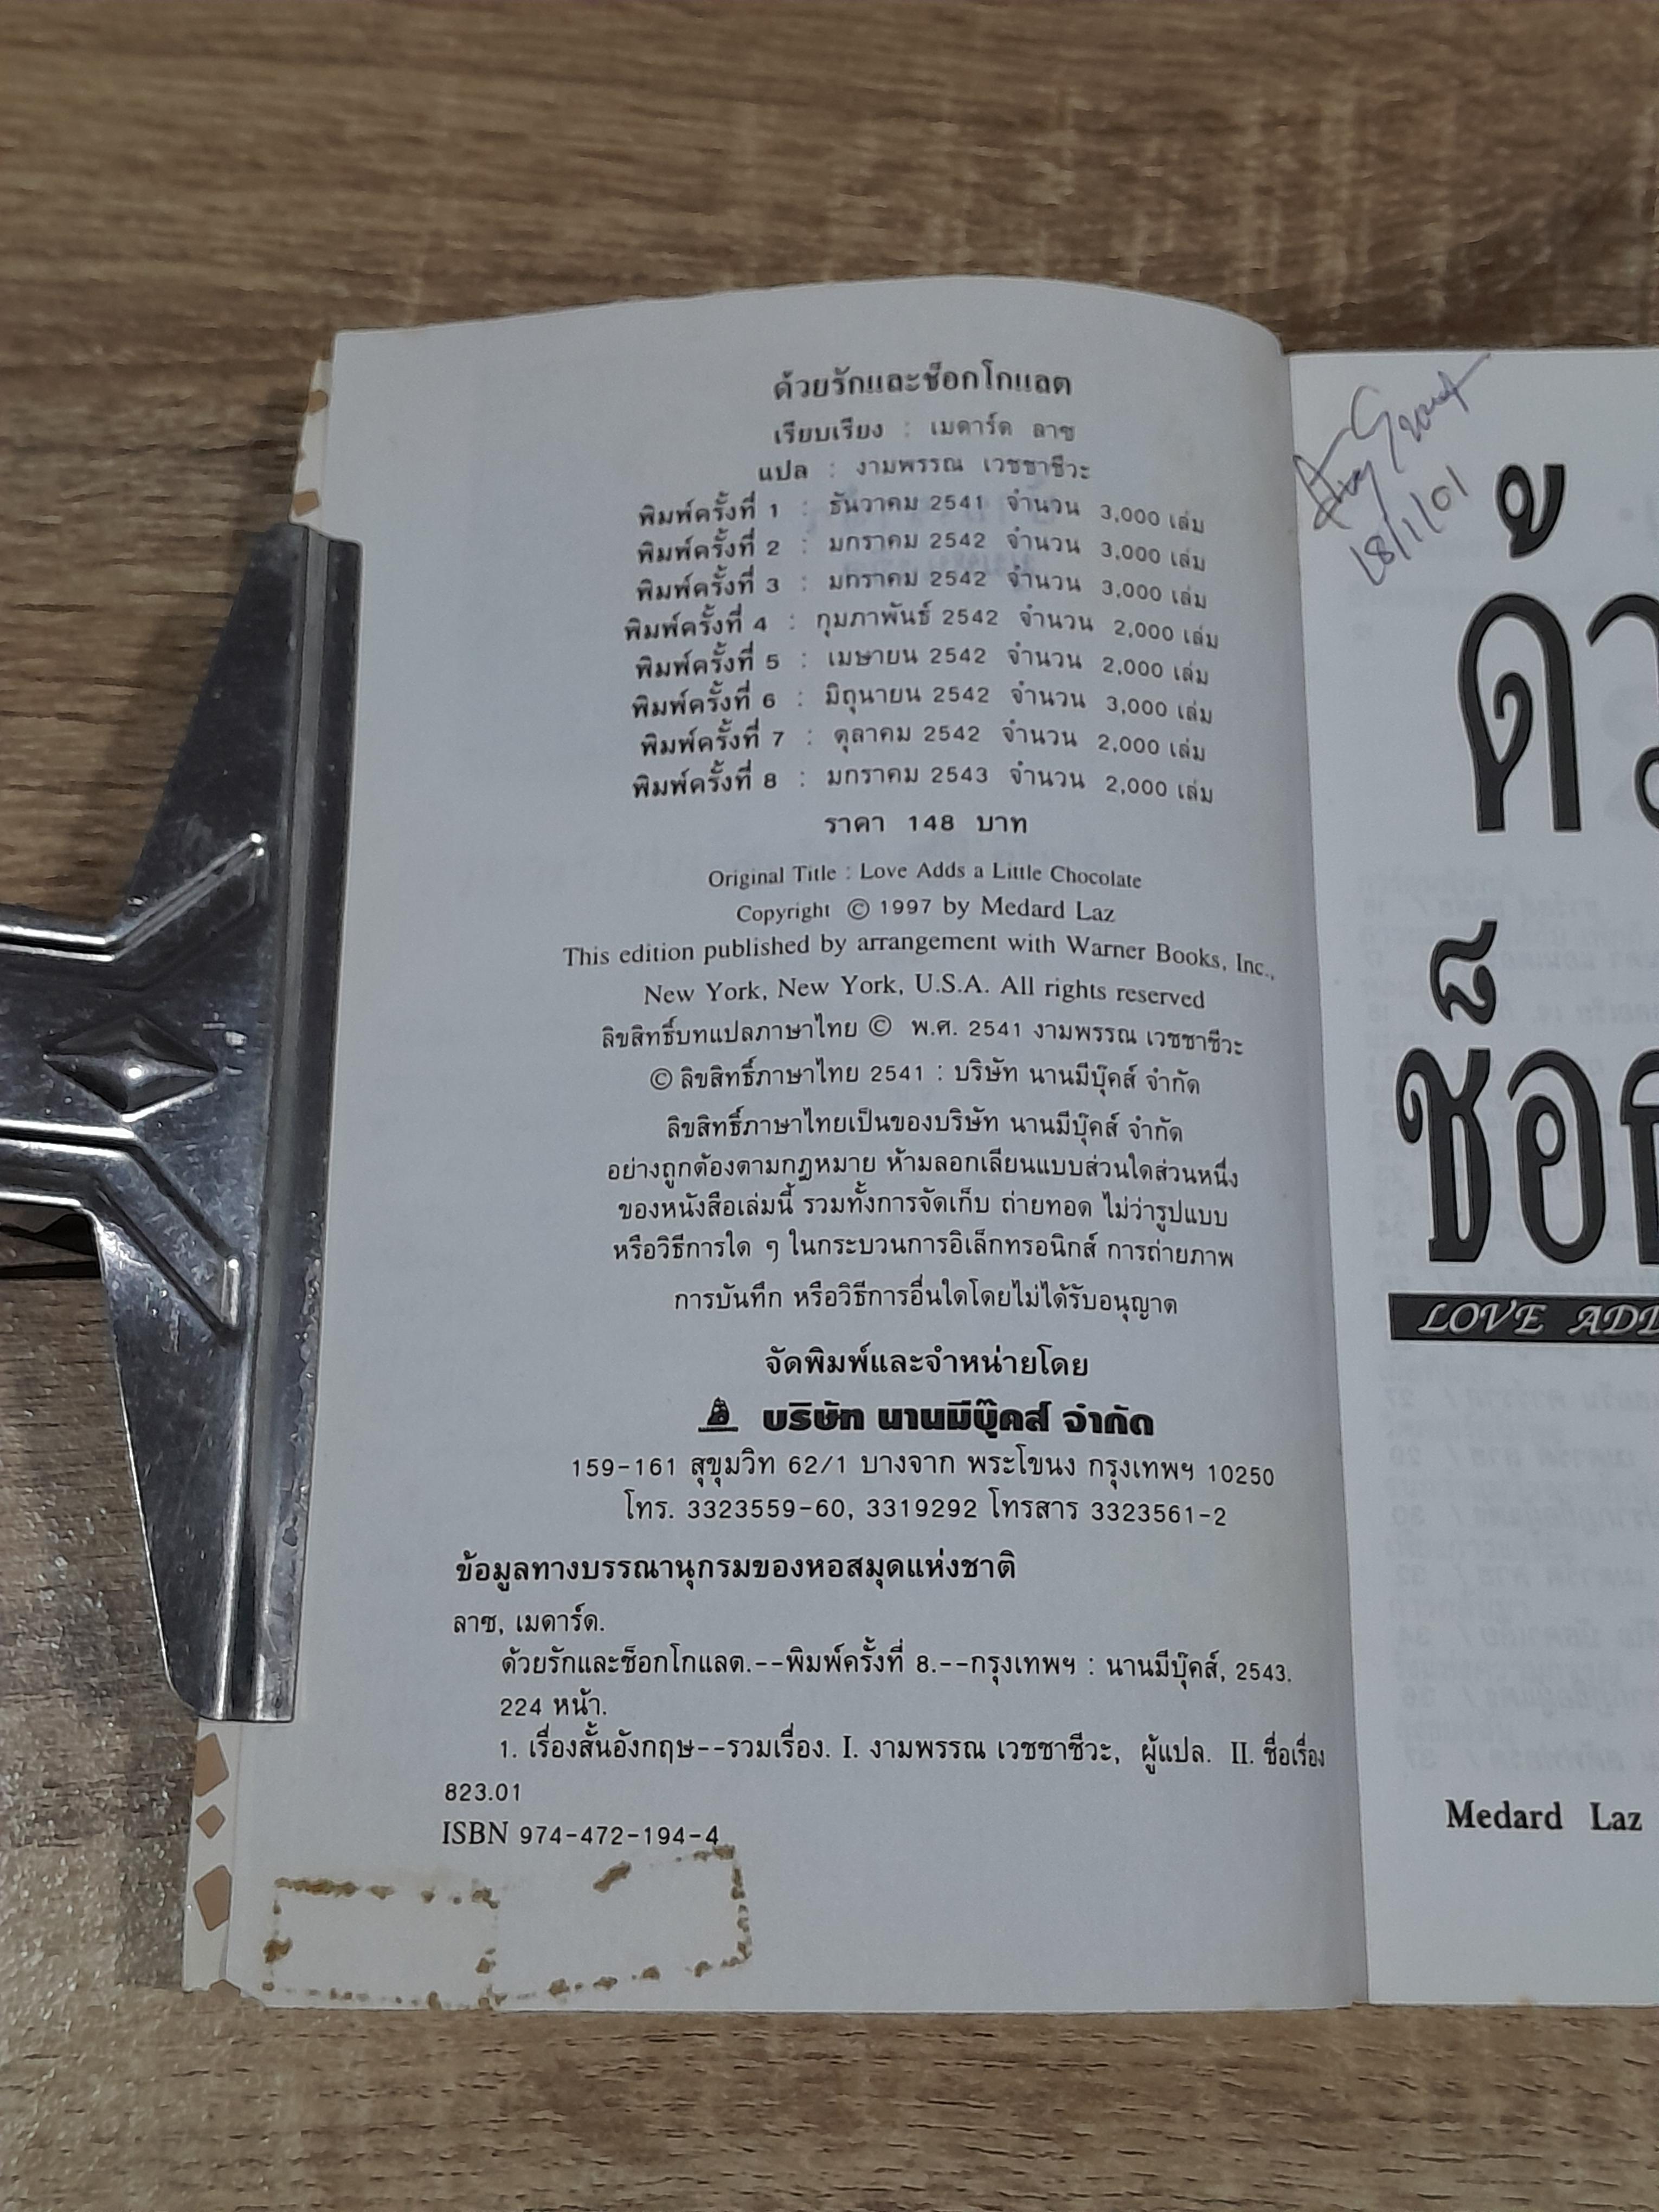 ด้วยรักและช็อกโกแลต
เรียบเรียง : เมดาร์ด ลาซ
แปล : งามพรรณ เวชชาชีวะ
พิมพ์ครั้งที่ 1 : ธันวาคม 2541 จำนวน 3,000 เล่ม
พิมพ์ครั้งที่ 2 : มกราคม 2542 จำนวน 3,000 เล่ม
พิมพ์ครั้งที่ 3 : มกราคม 2542 จำนวน 3,000 เล่ม
พิมพ์ครั้งที่ 4 : กุมภาพันธ์ 2542 จำนวน 2,000 เล่ม
พิมพ์ครั้งที่ 5 : เมษายน 2542 จำนวน 2,000 เล่ม
พิมพ์ครั้งที่ 6 : มิถุนายน 2542 จำนวน 3,000 เล่ม
พิมพ์ครั้งที่ 7 : ตุลาคม 2542 จำนวน 2,000 เล่ม
พิมพ์ครั้งที่ 8 : มกราคม 2543 จำนวน 2,000 เล่ม
ราคา 148 บาท
Original Title : Love Adds a Little Chocolate
Copyright © 1997 by Medard Laz
This edition published by arrangement with Warner Books, Inc.,
New York, New York, U.S.A. All rights reserved
ลิขสิทธิ์บทแปลภาษาไทย © พ.ศ. 2541 งามพรรณ เวชชาชีวะ
© ลิขสิทธิ์ภาษาไทย 2541 : บริษัท นานมีบุ๊คส์ จำกัด
ลิขสิทธิ์ภาษาไทยเป็นของบริษัท นานมีบุ๊คส์ จำกัด
อย่างถูกต้องตามกฎหมาย ห้ามลอกเลียนแบบส่วนใดส่วนหนึ่ง
ของหนังสือเล่มนี้ รวมทั้งการจัดเก็บ ถ่ายทอด ไม่ว่ารูปแบบ
หรือวิธีการใด ๆ ในกระบวนการอิเล็กทรอนิกส์ การถ่ายภาพ
การบันทึก หรือวิธีการอื่นใดโดยไม่ได้รับอนุญาต
จัดพิมพ์และจำหน่ายโดย
บริษัท นานมีบุ๊คส์ จำกัด
159-161 สุขุมวิท 62/1 บางจาก พระโขนง กรุงเทพฯ 10250
โทร. 3323559-60, 3319292 โทรสาร 3323561-2
ข้อมูลทางบรรณานุกรมของหอสมุดแห่งชาติ
ลาซ, เมดาร์ด.
ด้วยรักและช็อกโกแลต.--พิมพ์ครั้งที่ 8.--กรุงเทพฯ : นานมีบุ๊คส์, 2543.
224 หน้า.
1. เรื่องสั้นอังกฤษ--รวมเรื่อง. I. งามพรรณ เวชชาชีวะ, ผู้แปล. II. ชื่อเรื่อง
823.01
ISBN 974-472-194-4
18/1/01
ด้ว
ช็อก
LOVE ADD
Medard Laz